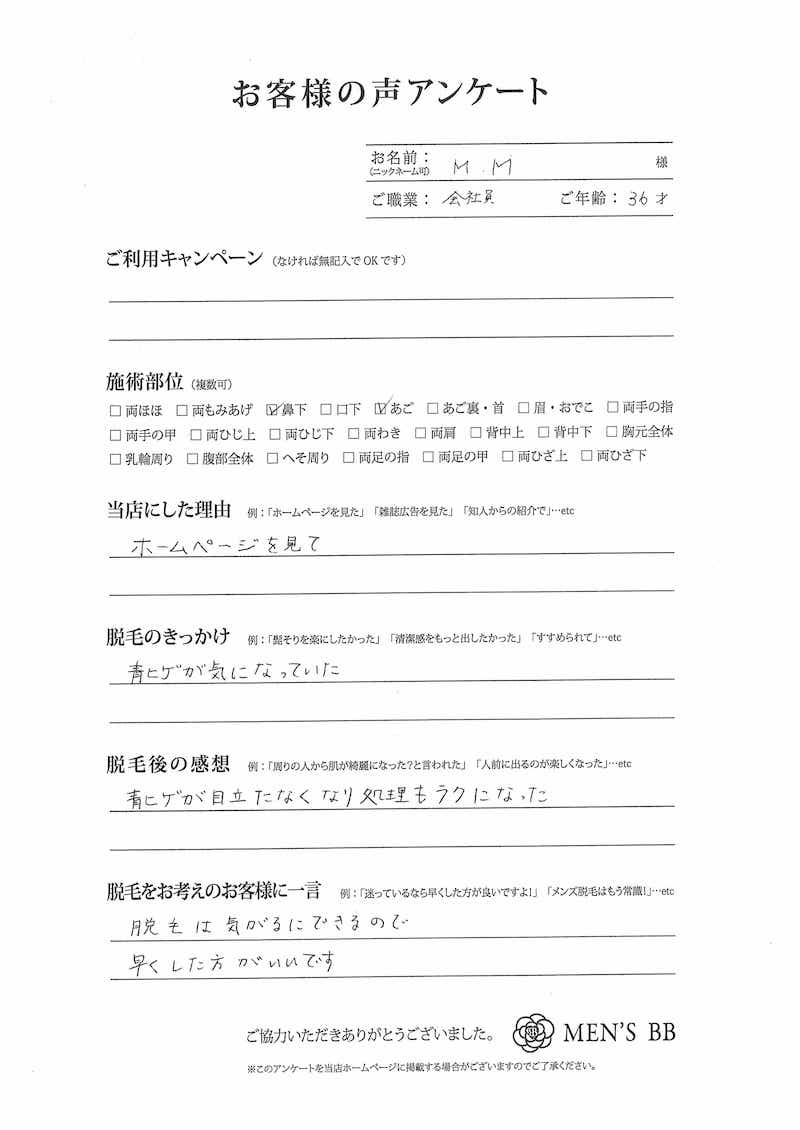 お客様の声アンケート
お名前：（ニックネーム可） M.M 様
ご職業： 会社員 ご年齢： 36才
ご利用キャンペーン （なければ無記入でOKです）
施術部位 （複数可）
□ 両ほほ □ 両もみあげ ☑ 鼻下 □ 口下 ☑ あご □ あご裏・首 □ 眉・おでこ □ 両手の指
□ 両手の甲 □ 両ひじ上 □ 両ひじ下 □ 両わき □ 両肩 □ 背中上 □ 背中下 □ 胸元全体
□ 乳輪周り □ 腹部全体 □ へそ周り □ 両足の指 □ 両足の甲 □ 両ひざ上 □ 両ひざ下
当店にした理由 例：「ホームページを見た」「雑誌広告を見た」「知人からの紹介で」…etc
ホームページを見て
脱毛のきっかけ 例：「髭そりを楽にしたかった」「清潔感をもっと出したかった」「すすめられて」…etc
青ヒゲが気になっていた
脱毛後の感想 例：「周りの人から肌が綺麗になった？と言われた」「人前に出るのが楽しくなった」…etc
青ヒゲが目立たなくなり処理もラクになった
脱毛をお考えのお客様に一言 例：「迷っているなら早くした方が良いですよ！」「メンズ脱毛はもう常識！」…etc
脱毛は気がるにできるので
早くした方がいいです
ご協力いただきありがとうございました。 MEN'S BB
※このアンケートを当店ホームページに掲載する場合がございますのでご了承ください。